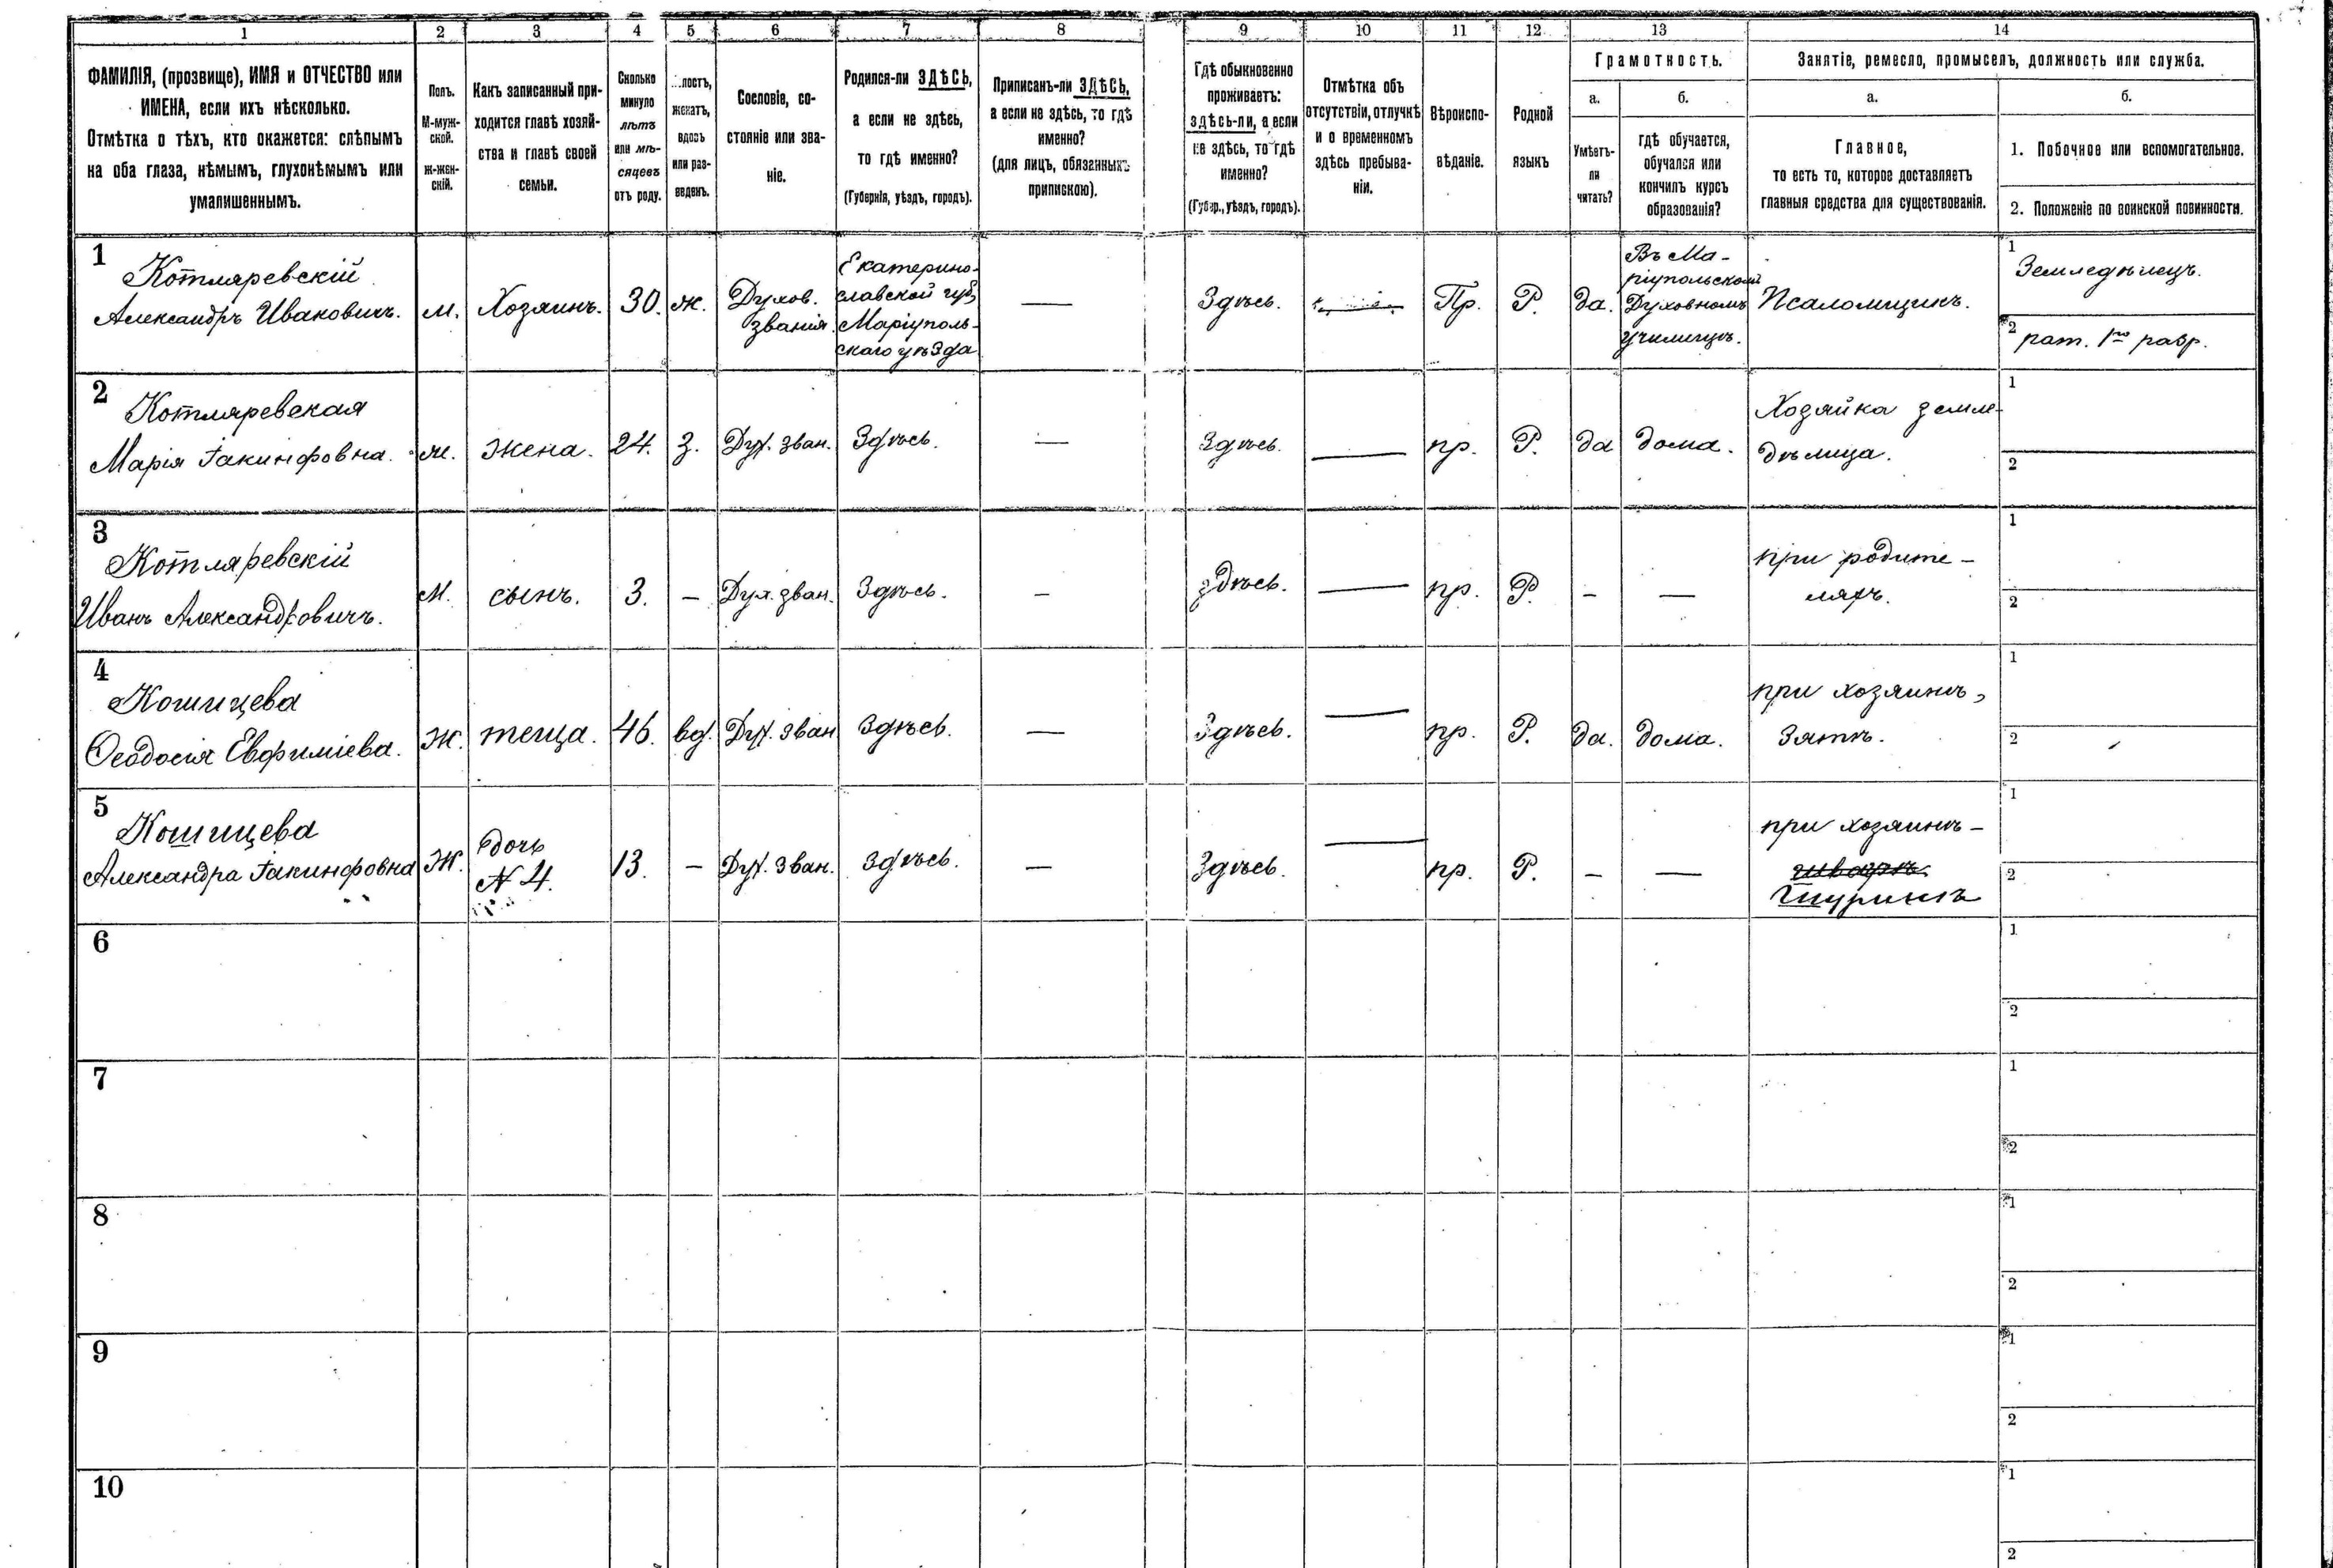 1 2 3 4 5 6 7 8 9 10 11 12 13 14
ФАМИЛІЯ, (прозвище), ИМЯ и ОТЧЕСТВО или
ИМЕНА, если ихъ нѣсколько.
Отмѣтка о тѣхъ, кто окажется: слѣпымъ
на оба глаза, нѣмымъ, глухонѣмымъ или
умалишеннымъ.
Полъ.
М-муж-
ской.
ж-жен-
скій.
Какъ записанный при-
ходится главѣ хозяй-
ства и главѣ своей
семьи.
Сколько
минуло
лѣтъ
или мѣ-
сяцевъ
отъ роду.
лостъ,
женатъ,
вдовъ
или раз-
веденъ.
Сословіе, со-
стояніе или зва-
ніе.
Родился-ли ЗДѢСЬ,
а если не здѣсь,
то гдѣ именно?
(Губернія, уѣздъ, городъ).
Приписанъ-ли ЗДѢСЬ,
а если не здѣсь, то гдѣ
именно?
(для лицъ, обязанныхъ
припискою).
Гдѣ обыкновенно
проживаетъ:
здѣсь-ли, а если
не здѣсь, то гдѣ
именно?
(Губер., уѣздъ, городъ).
Отмѣтка объ
отсутствіи, отлучкѣ
и о временномъ
здѣсь пребыва-
ніи.
Вѣроиспо-
вѣданіе.
Родной
языкъ
Грамотность.
а.
Умѣетъ-
ли
читать?
б.
гдѣ обучается,
обучался или
кончилъ курсъ
образованія?
Занятіе, ремесло, промыселъ, должность или служба.
а.
Главное,
то есть то, которое доставляетъ
главныя средства для существованія.
б.
1. Побочное или вспомогательное.
2. Положеніе по воинской повинности.
1
Котляревскій
Александръ Ивановичъ.
м.
Хозяинъ.
30.
ж.
Духов.
званія.
Екатерино-
славской губ.
Маріуполь-
скаго уѣзда
—
Здѣсь.
Пр.
Р.
да.
Въ Ма-
ріупольскомъ
Духовномъ
училищѣ.
Псаломщикъ.
1
Земледѣлецъ.
2
рат. 1го разр.
2
Котляревская
Марія Іакинфовна.
ж.
жена.
24.
з.
Дух. зван.
Здѣсь.
—
Здѣсь.
—
пр.
Р.
да
дома.
Хозяйка земле-
дѣлица.
1
2
3
Котляревскій
Иванъ Александровичъ.
М.
сынъ.
3.
-
Дух. зван.
Здѣсь.
-
здѣсь.
—
пр.
Р.
-
—
при родите-
ляхъ.
1
2
4
Кошицева
Ѳеодосія Евфиміева.
Ж.
теща.
46.
вд.
Дух. зван
Здѣсь.
—
Здѣсь.
—
пр.
Р.
да.
дома.
при хозяинѣ,
Зятѣ.
1
2
5
Кошицева
Александра Іакинфовна
Ж.
дочь
N 4.
13.
-
Дух. зван.
здѣсь.
—
Здѣсь.
—
пр.
Р.
-
—
при хозяинѣ-
Шуринѣ
1
2
6
1
2
7
1
2
8
1
2
9
1
2
10
1
2